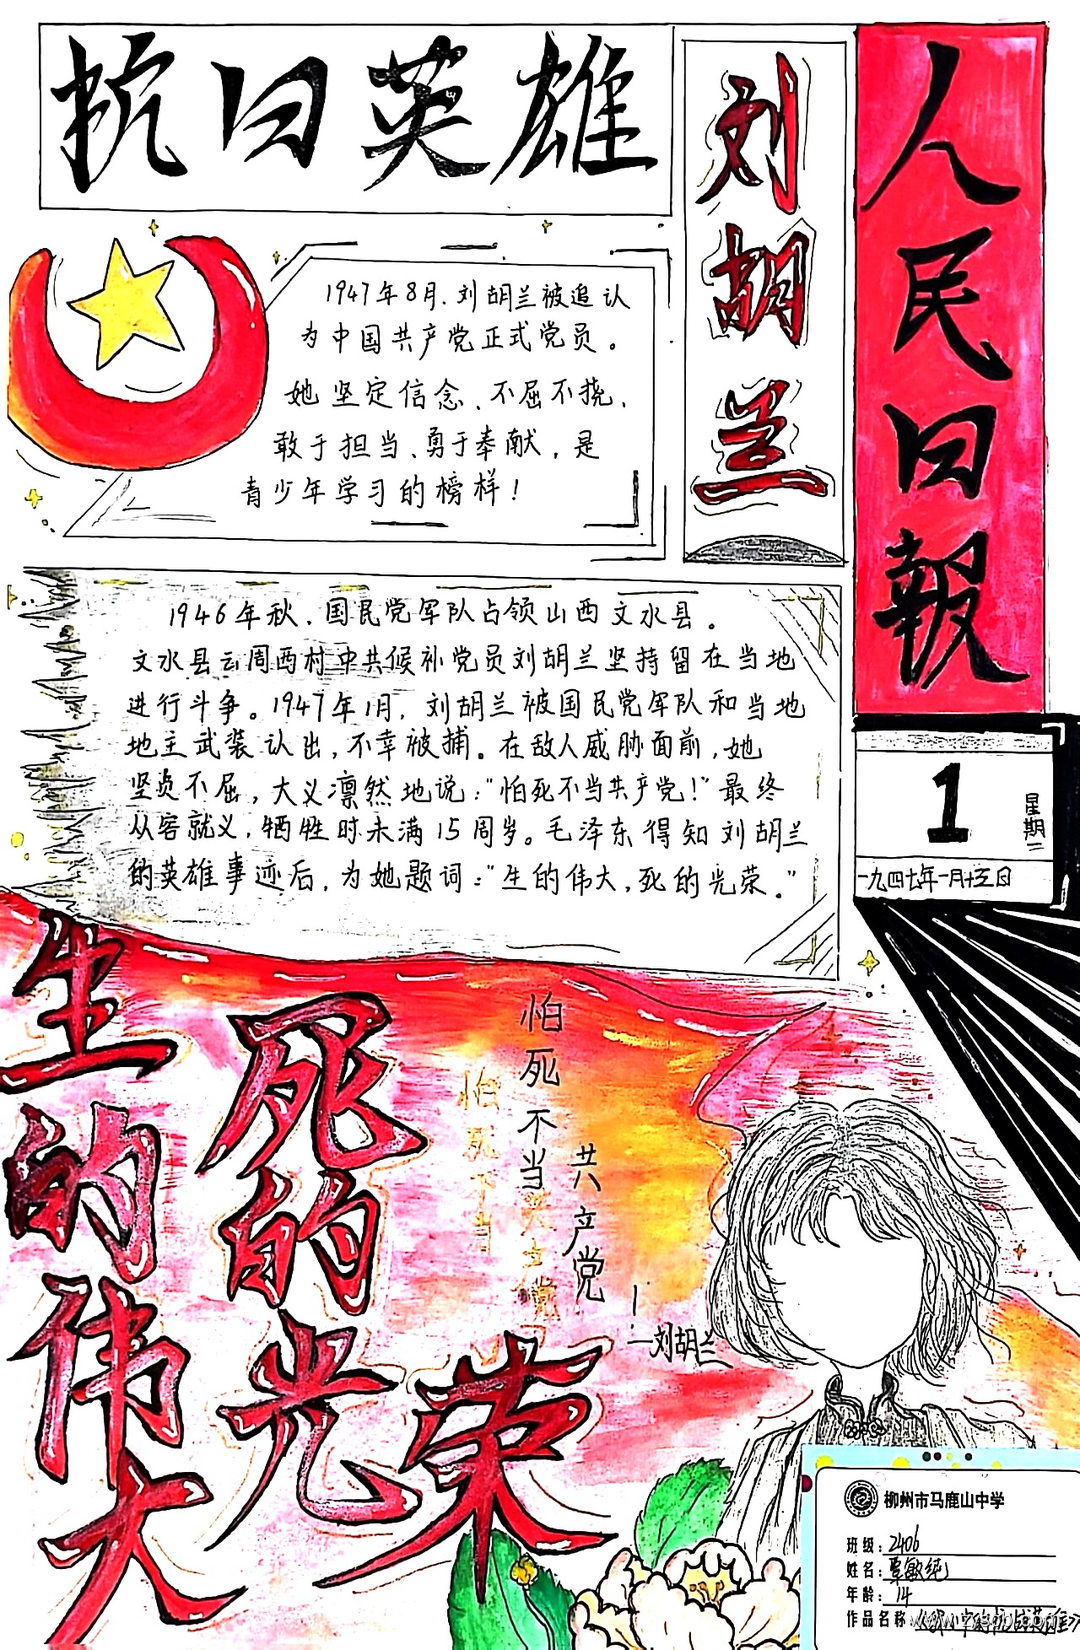 抗日英雄
刘胡兰
人民日報
1947年8月、刘胡兰被追认
为中国共产党正式党员。
她坚定信念、不屈不挠、
敢于担当、勇于奉献，是
青少年学习的榜样！
1946年秋、国民党军队占领山西文水县。
文水县云周西村中共候补党员刘胡兰坚持留在当地
进行斗争。1947年1月，刘胡兰被国民党军队和当地
地主武装认出，不幸被捕。在敌人威胁面前，她
坚贞不屈，大义凛然地说：“怕死不当共产党！”最终
从容就义，牺牲时未满15周岁。毛泽东得知刘胡兰
的英雄事迹后，为她题词：“生的伟大，死的光荣。”
1
星期二
一九四七年一月十五日
生的伟大
死的光荣
怕死不当
共产党
！
—刘胡兰
怕死不当
共产党
柳州市马鹿山中学
班级：2406
姓名：覃敏纯
年龄：14
作品名称：